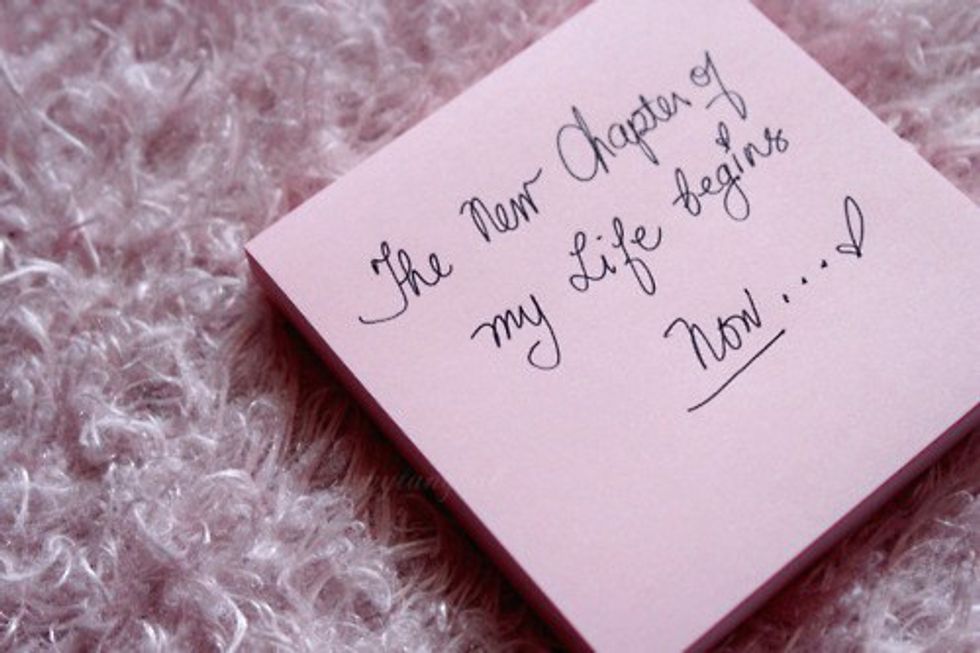 The New Chapter of
my Life begins
Now....